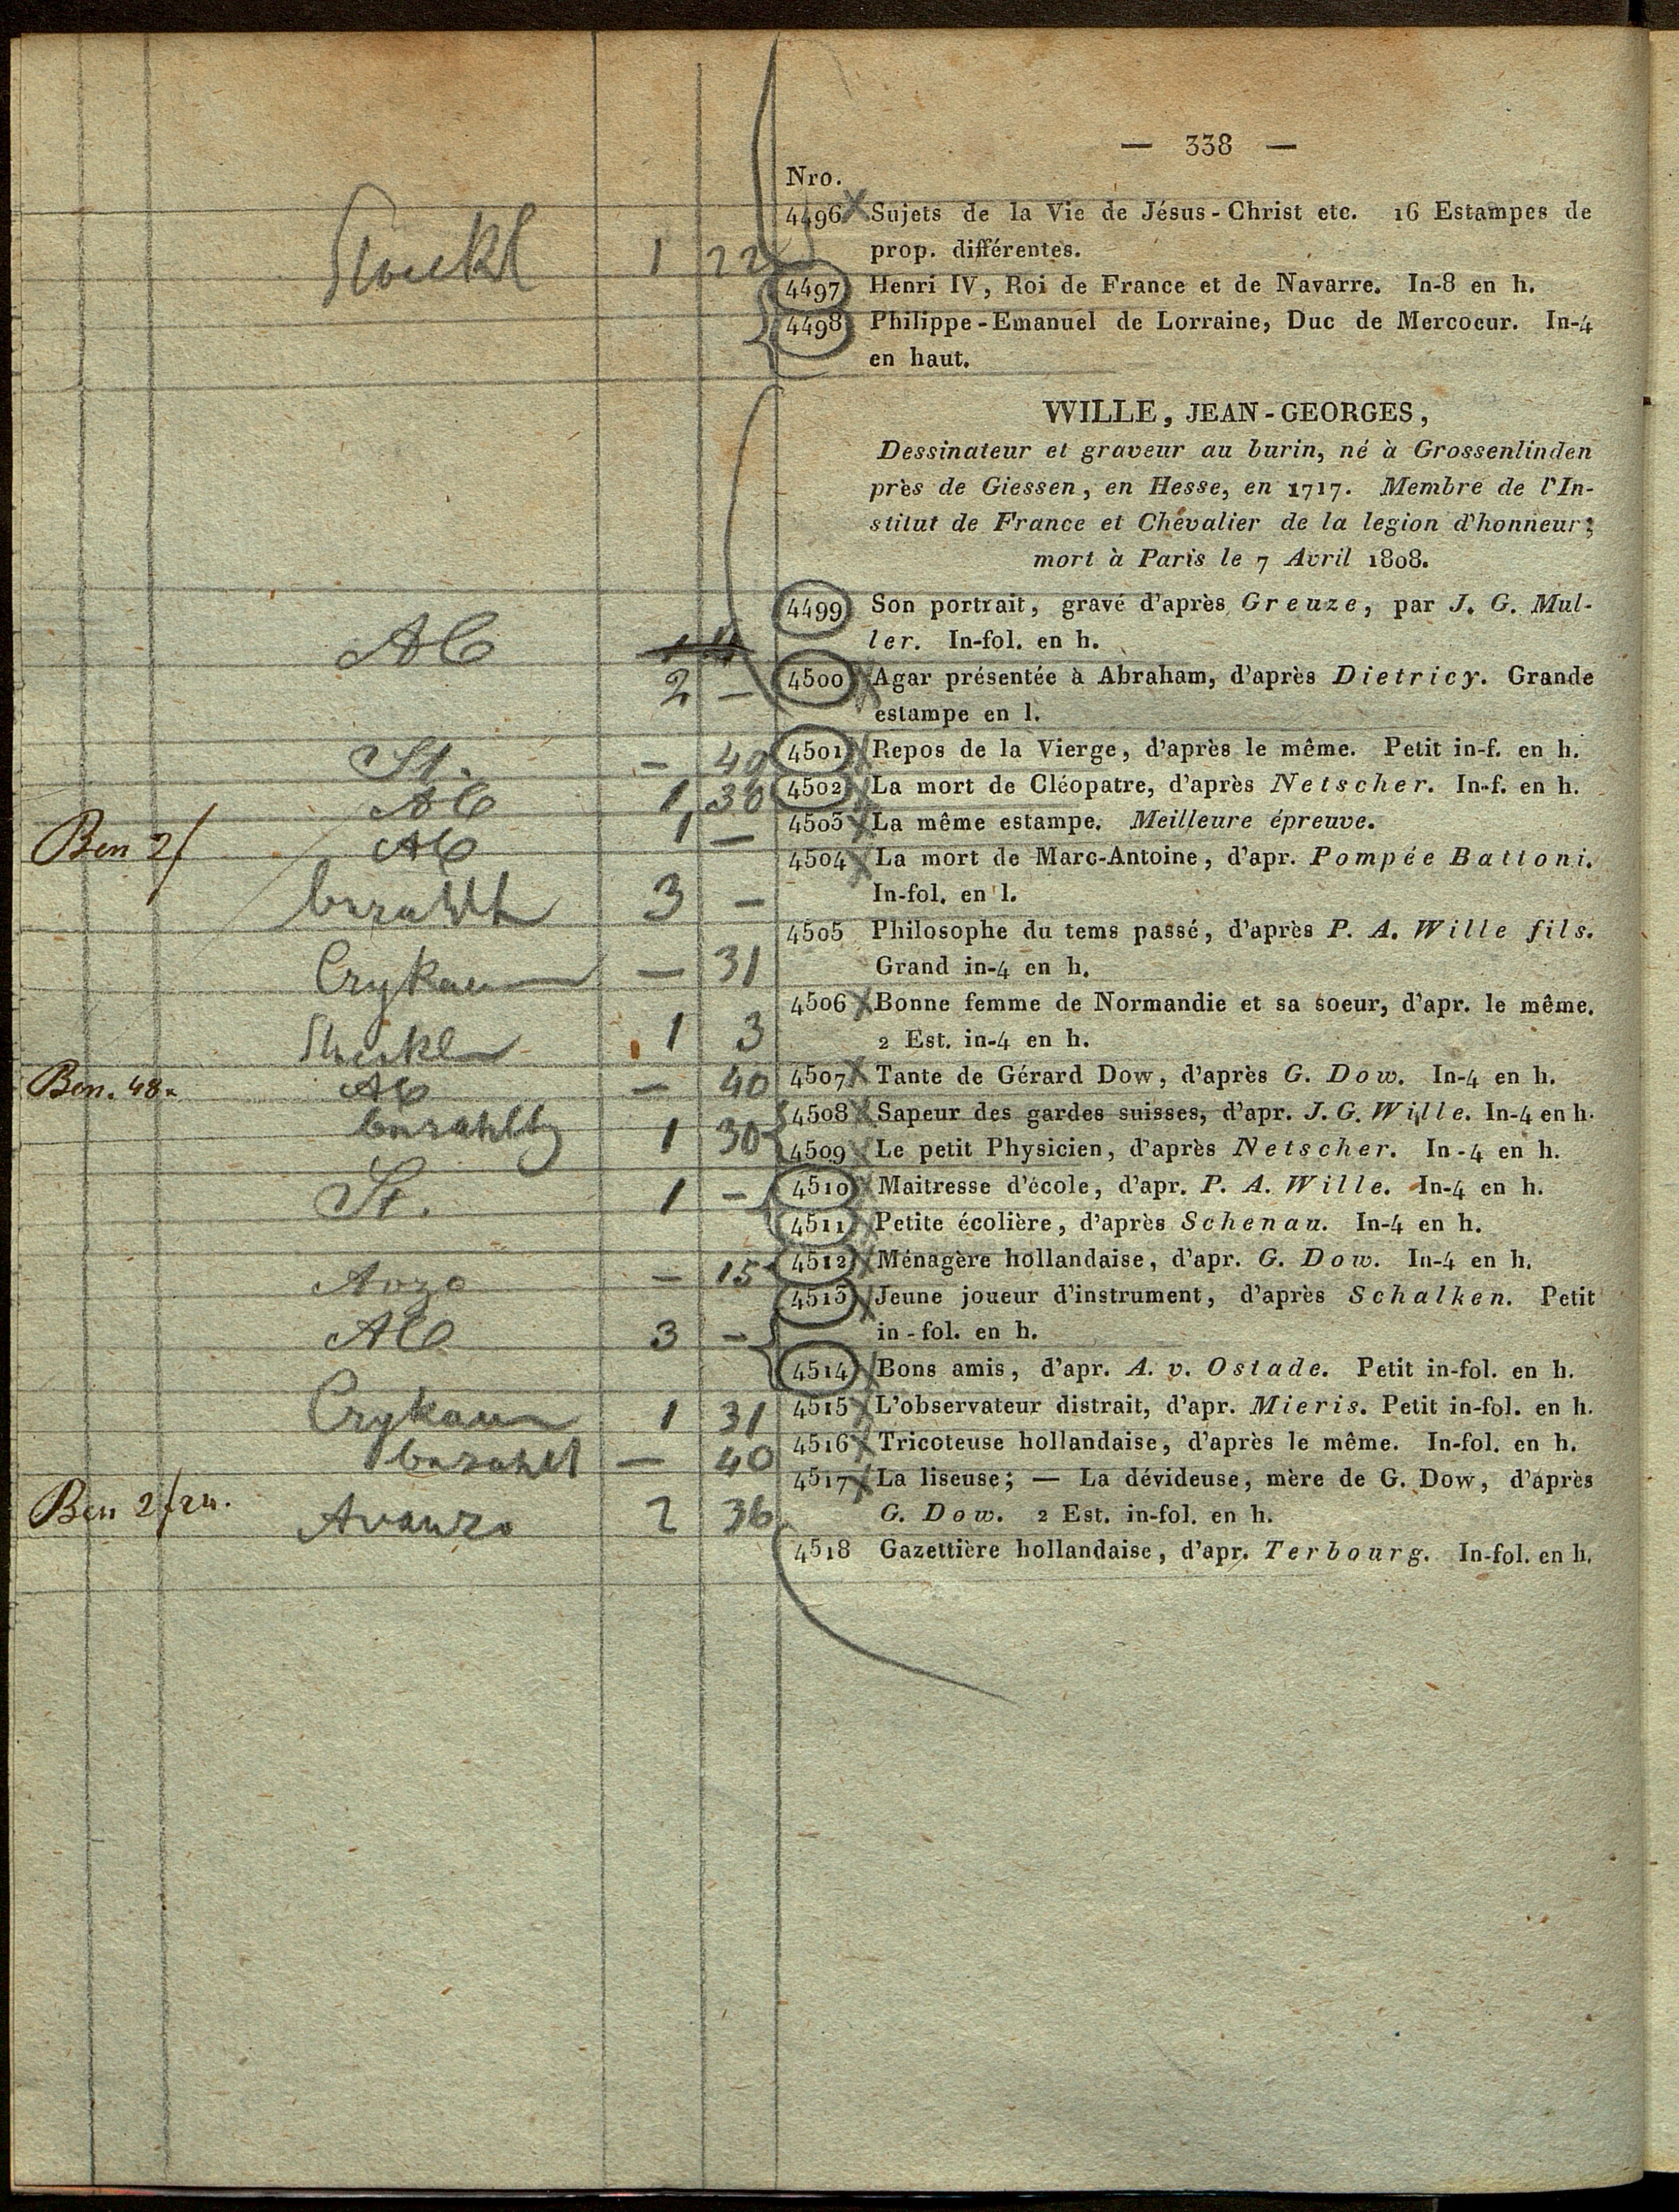 — 338 —
Nro.
4496 Sujets de la Vie de Jésus-Christ etc. 16 Estampes de
prop. différentes.
1 22
4497 Henri IV, Roi de France et de Navarre. In-8 en h.
4498 Philippe-Emanuel de Lorraine, Duc de Mercoeur. In-4
en haut.
WILLE, JEAN-GEORGES,
Dessinateur et graveur au burin, né à Grossenlinden
près de Giessen, en Hesse, en 1717. Membre de l'In-
stitut de France et Chevalier de la legion d'honneur;
mort à Paris le 7 Avril 1808.
4499 Son portrait, gravé d'après Greuze, par J. G. Mul-
ler. In-fol. en h.
2 —
4500 Agar présentée à Abraham, d'après Dietricy. Grande
estampe en l.
St. — 40 4501 Repos de la Vierge, d'après le même. Petit in-f. en h.
1 30 4502 La mort de Cléopatre, d'après Netscher. In-f. en h.
Ben 2f 1 — 4503 La même estampe. Meilleure épreuve.
4504 La mort de Marc-Antoine, d'apr. Pompée Battoni.
3 — In-fol. en l.
4505 Philosophe du tems passé, d'après P. A. Wille fils.
— 31 Grand in-4 en h.
4506 Bonne femme de Normandie et sa soeur, d'apr. le même.
1 3 2 Est. in-4 en h.
Ben. 48x — 40 4507 Tante de Gérard Dow, d'après G. Dow. In-4 en h.
4508 Sapeur des gardes suisses, d'apr. J. G. Wille. In-4 en h.
1 30 4509 Le petit Physicien, d'après Netscher. In-4 en h.
St. 1 — 4510 Maitresse d'école, d'apr. P. A. Wille. In-4 en h.
4511 Petite écolière, d'après Schenau. In-4 en h.
— 15 4512 Ménagère hollandaise, d'apr. G. Dow. In-4 en h.
4513 Jeune joueur d'instrument, d'après Schalken. Petit
3 — in-fol. en h.
4514 Bons amis, d'apr. A. v. Ostade. Petit in-fol. en h.
1 31 4515 L'observateur distrait, d'apr. Mieris. Petit in-fol. en h.
— 40 4516 Tricoteuse hollandaise, d'après le même. In-fol. en h.
4517 La liseuse; — La dévideuse, mère de G. Dow, d'après
Ben 2f 24. Avanzo 2 36 G. Dow. 2 Est. in-fol. en h.
4518 Gazettière hollandaise, d'apr. Terbourg. In-fol. en h.